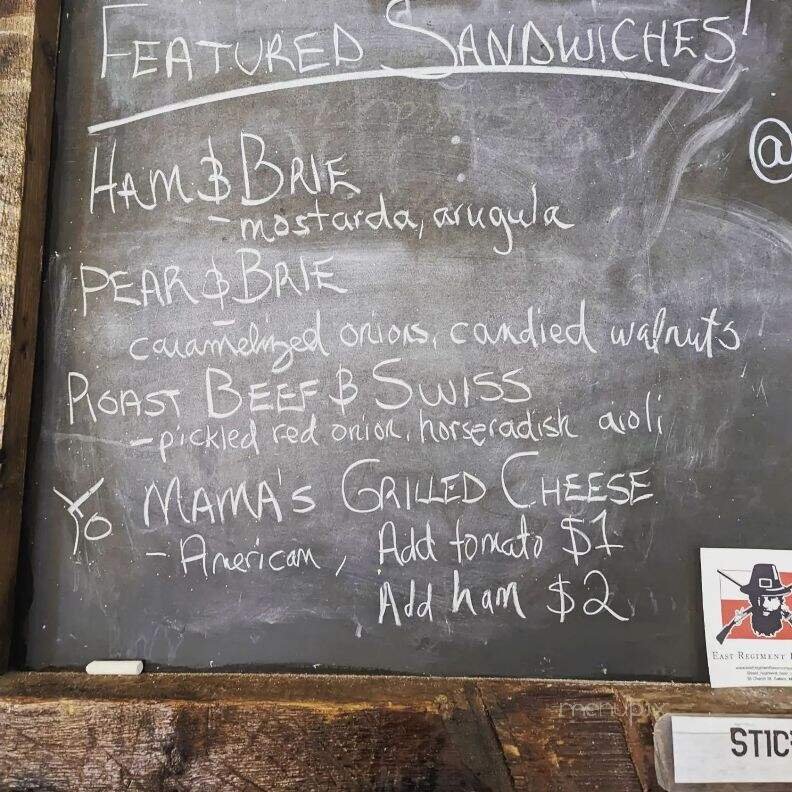 FEATURED SANDWICHES!
@
HAM & BRIE
- mostarda, arugula
PEAR & BRIE
- caramelized onions, candied walnuts
ROAST BEEF & SWISS
- pickled red onion, horseradish aioli
YO MAMA'S GRILLED CHEESE
- American, Add tomato $1
Add ham $2
EAST REGIMENT
menupix
STIC